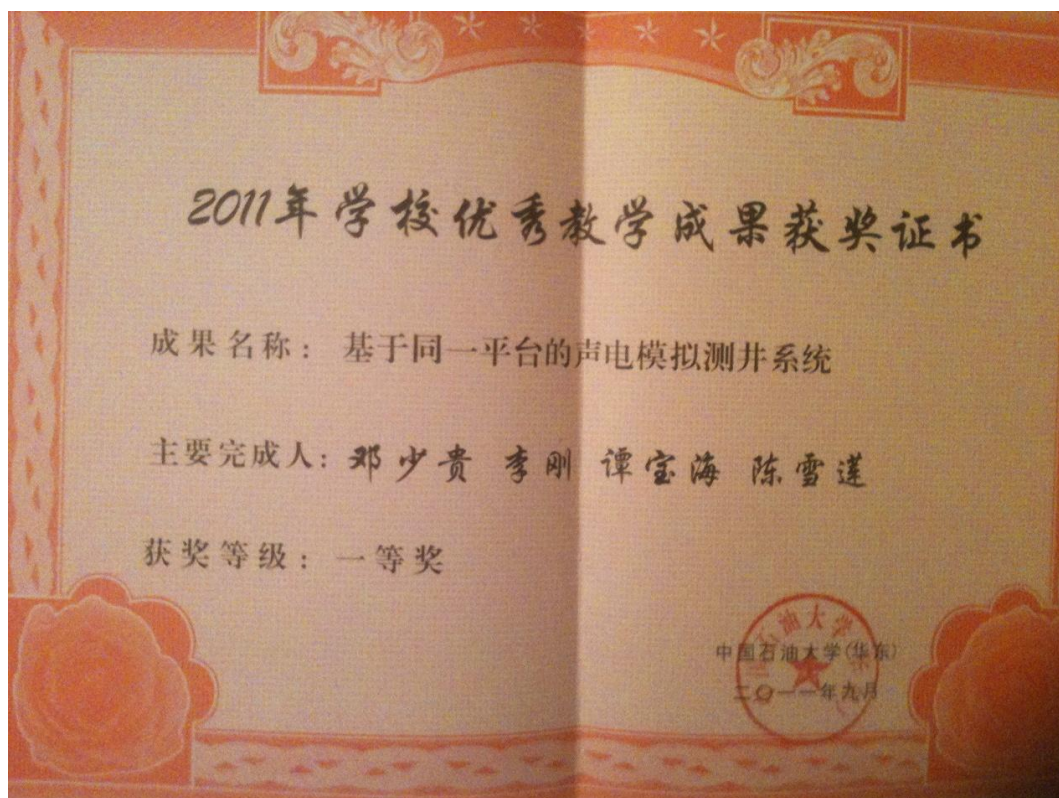 2011年学校优秀教学成果获奖证书
成果名称：基于同一平台的声电模拟测井系统
主要完成人：邓少贵 李刚 谭宝海 陈雪莲
获奖等级：一等奖
中国石油大学(华东)
二〇一一年九月